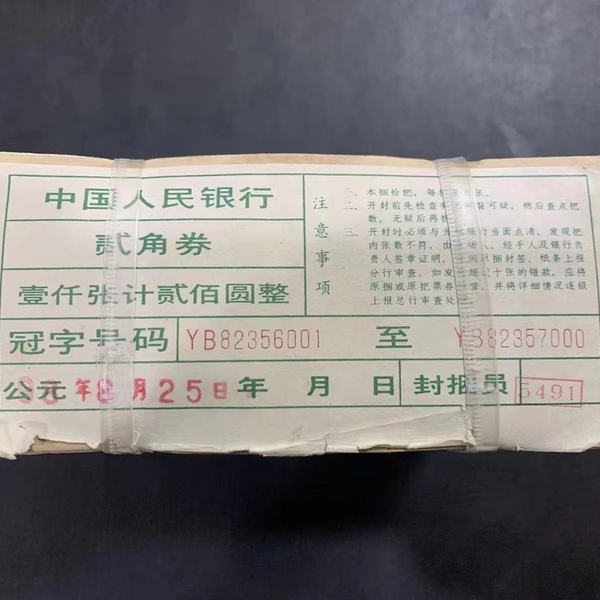 中国人民银行
贰角券
壹仟张计贰佰圆整
冠字号码 YB82356001 至 YB82357000
公元 年 月25日 年 月 日 封捆员 5491
注意事项
一、本捆检把，每 张。
二、开封前先检查 破裂可疑，然后查点把
数，无疑后再拆
三、开封时必须与当 银行当面点清，发现把
内张数不符，由 人、经手人及银行负
责人签章证明， 同原捆封签、纸条上报
分行审查。如发 过十张的错款，应将
原捆或原把票券 管，并将详细情况逐级
上报总行审查处